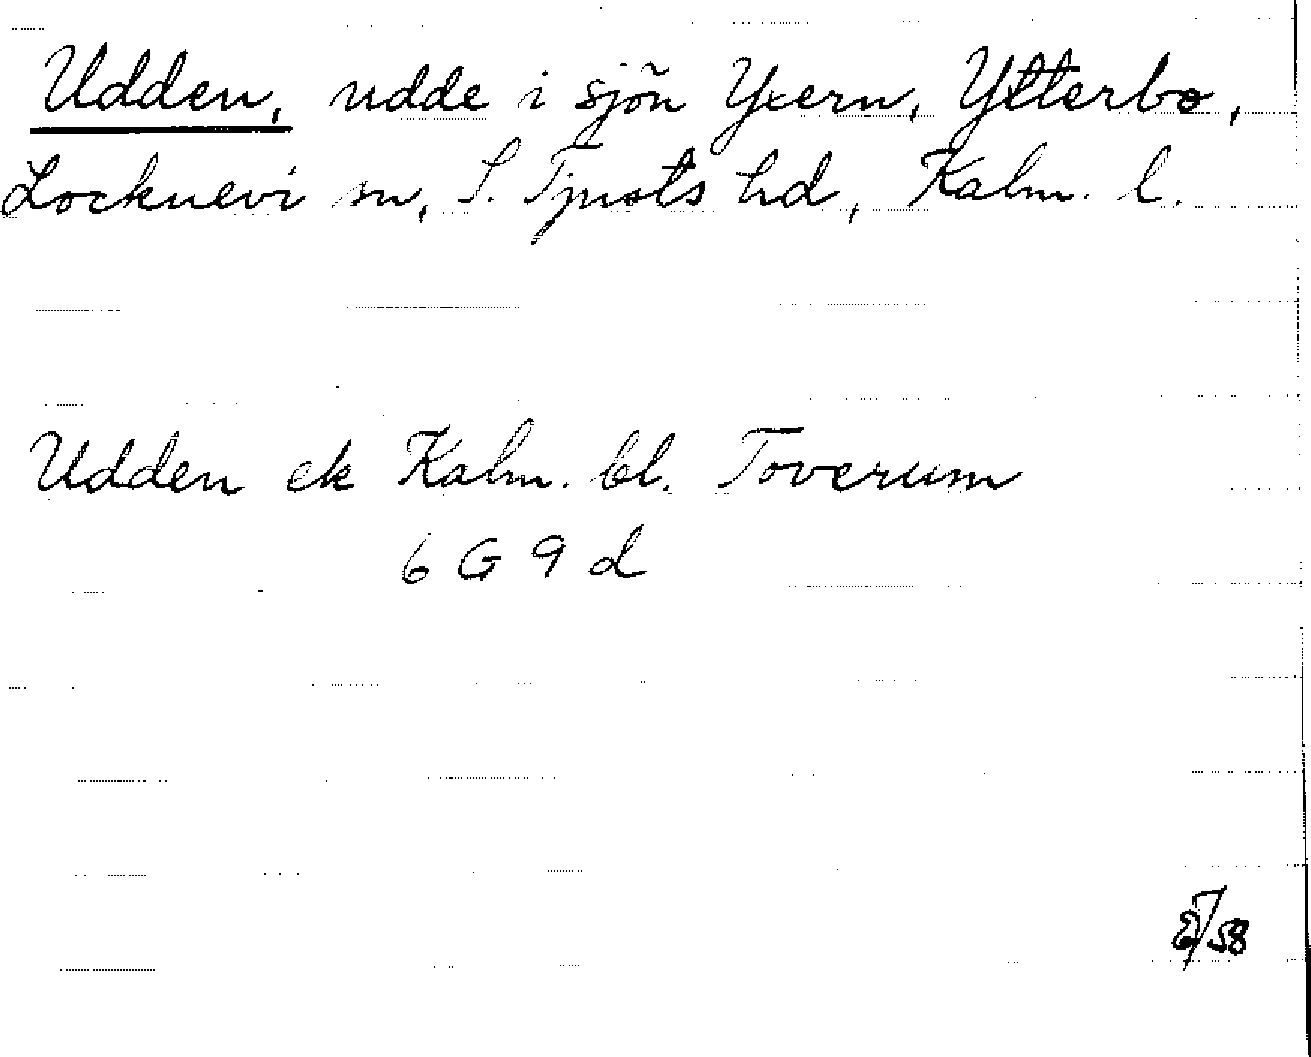 Udden, udde i sjön Yxern, Ytterbo,
Locknevi sn, S. Tjusts hd, Kalm. l.
Udden ek Kalm. bl. Toverum
6 G 9 d